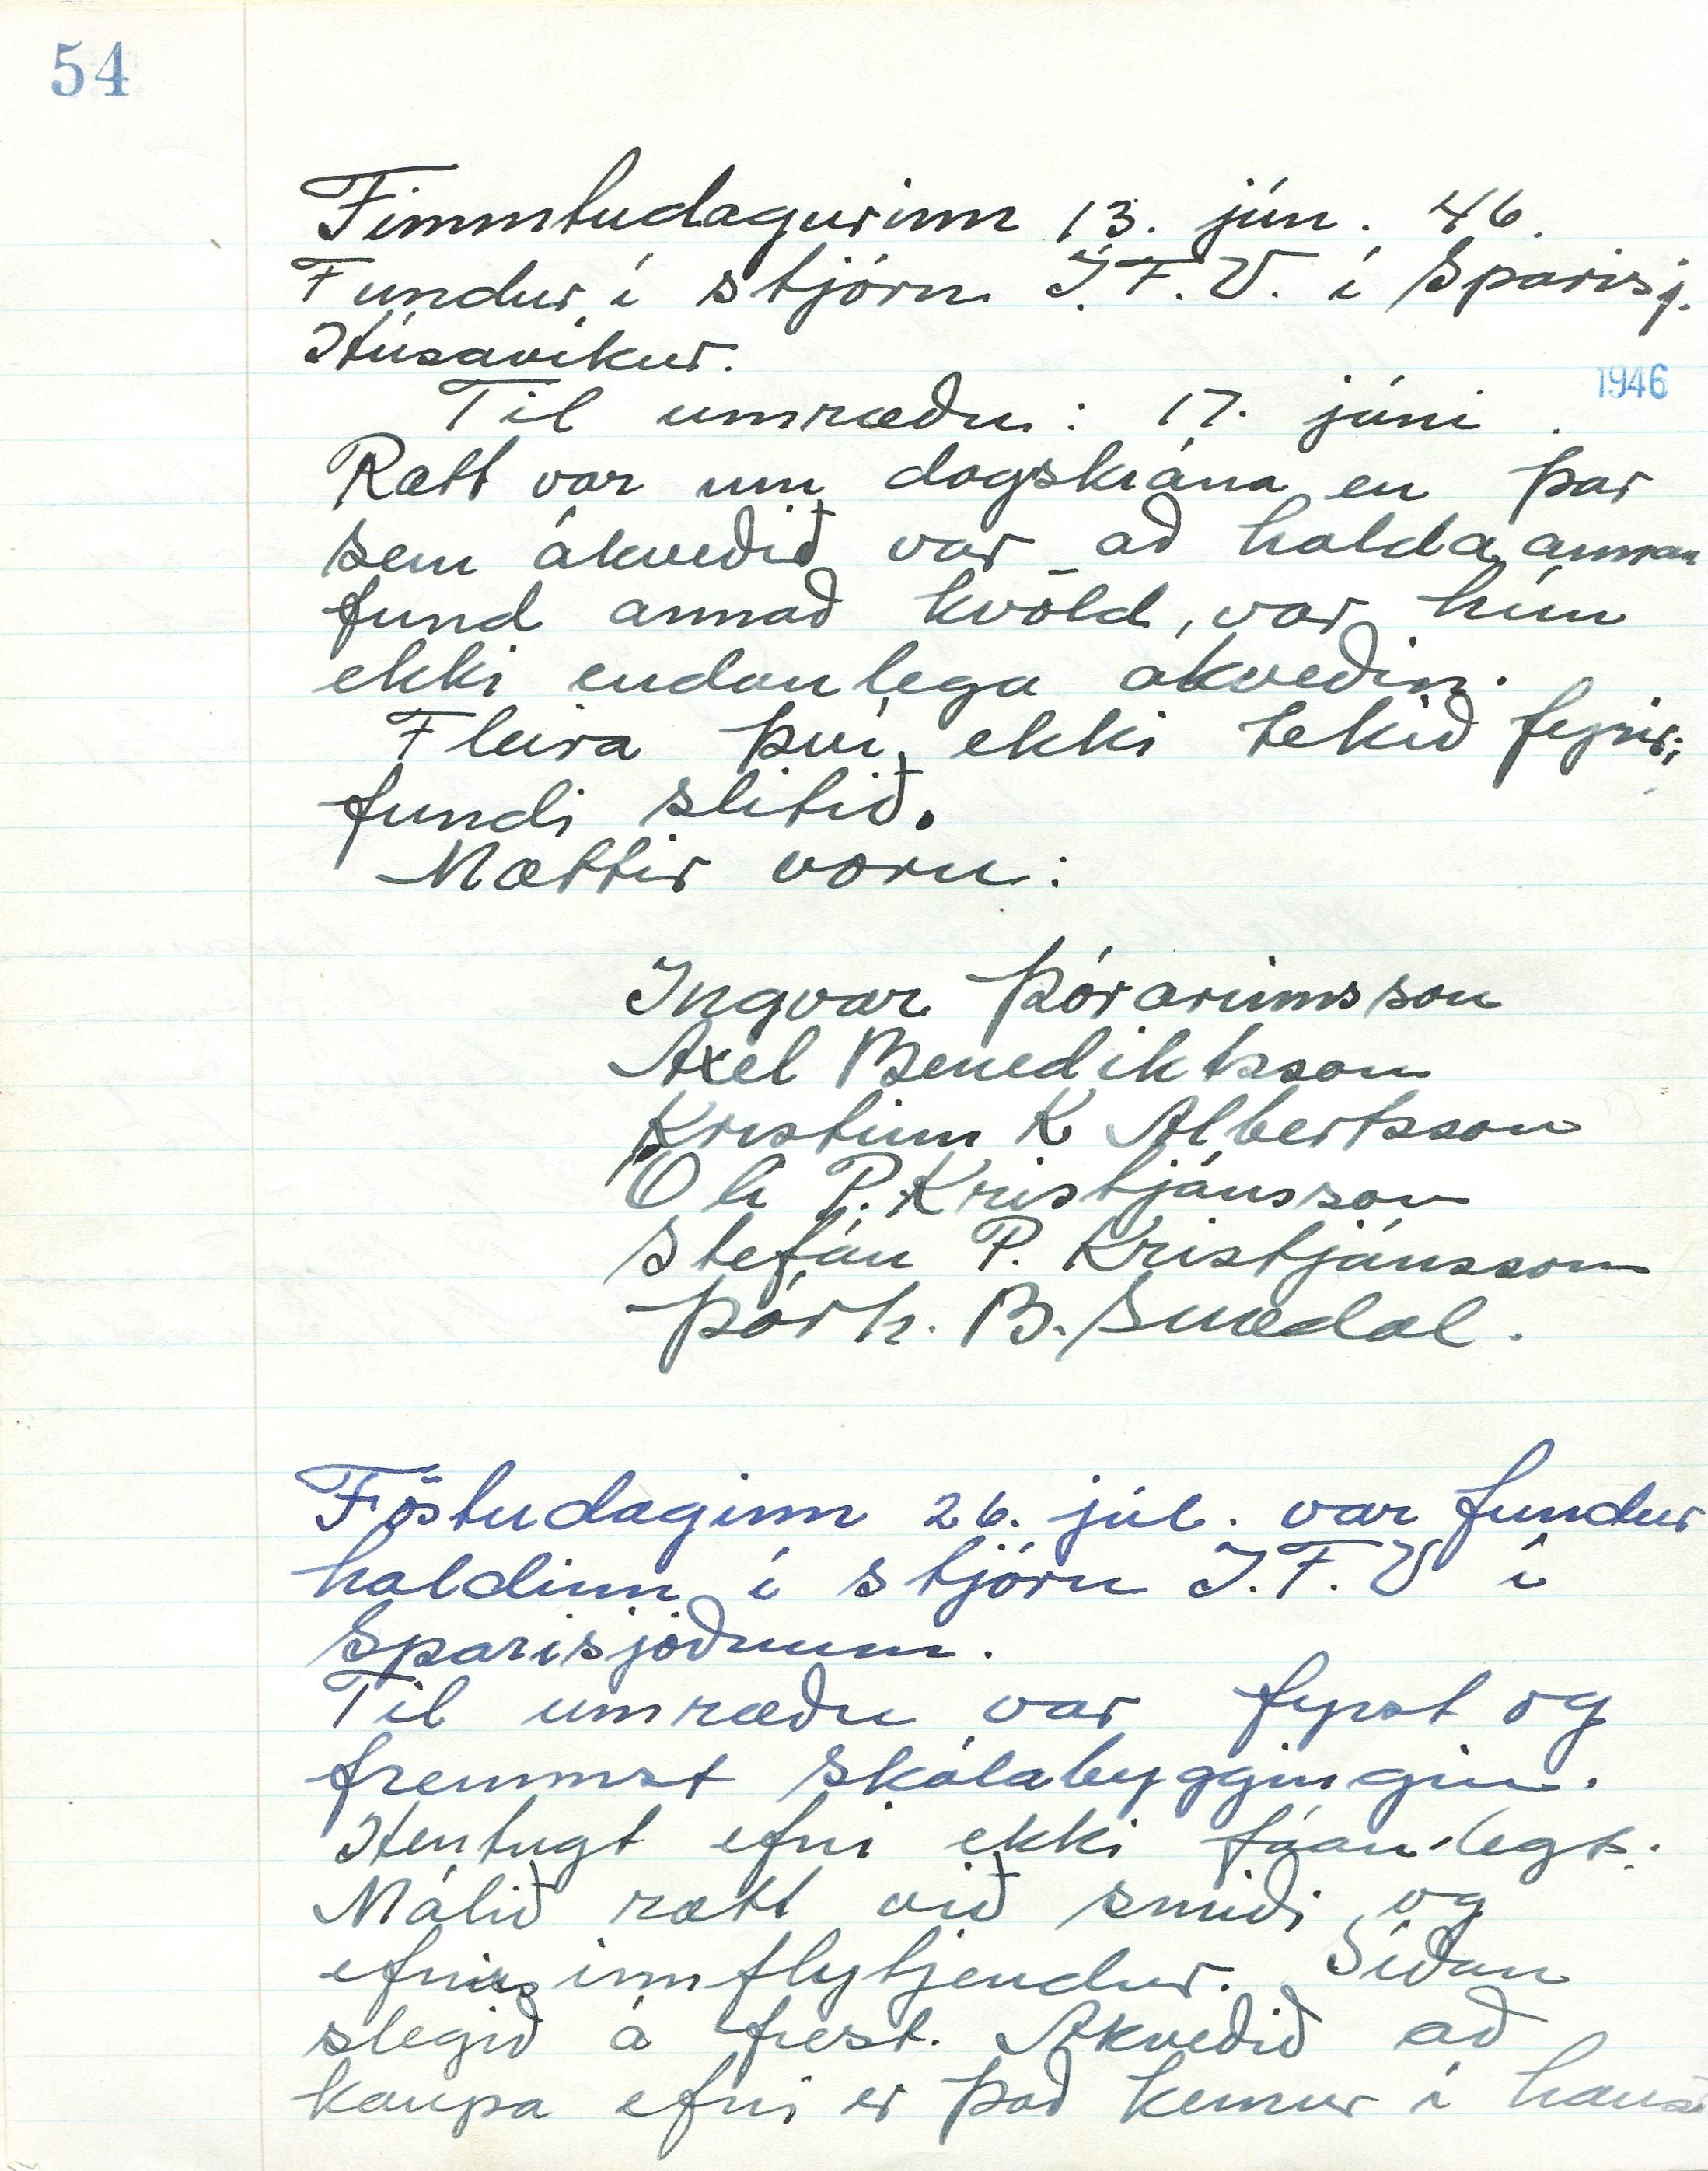 54
Fimmtudagurinn 13. jún. 46.
Fundur í stjórn Í.F.V. í Sparisj.
Húsavíkur.
1946
Til umræðu: 17. júní.
Rætt var um dagskrána en þar
sem ákveðið var að halda annan
fund annað kvöld, var hún
ekki endanlega ákveðin.
Fleira því ekki tekið fyrir;
fundi slitið.
Mættir voru:
Ingvar Þórarinnsson
Axel Benediktsson
Kristinn K Albertsson
Óli P. Kristjánsson
Stefán P. Kristjánsson
Þórh. B. Snædal.
Föstudaginn 26. júl. var fundur
haldinn í stjórn Í.F.V í
Sparisjóðnum.
Til umræðu var fyrst og
fremmst skálabyggingin.
Hentugt efni ekki fáanlegt.
Málið rætt við smiði og
efnisinnflytjendur. Síðan
slegið á frest. Ákveðið að
kaupa efni er það kemur í haust